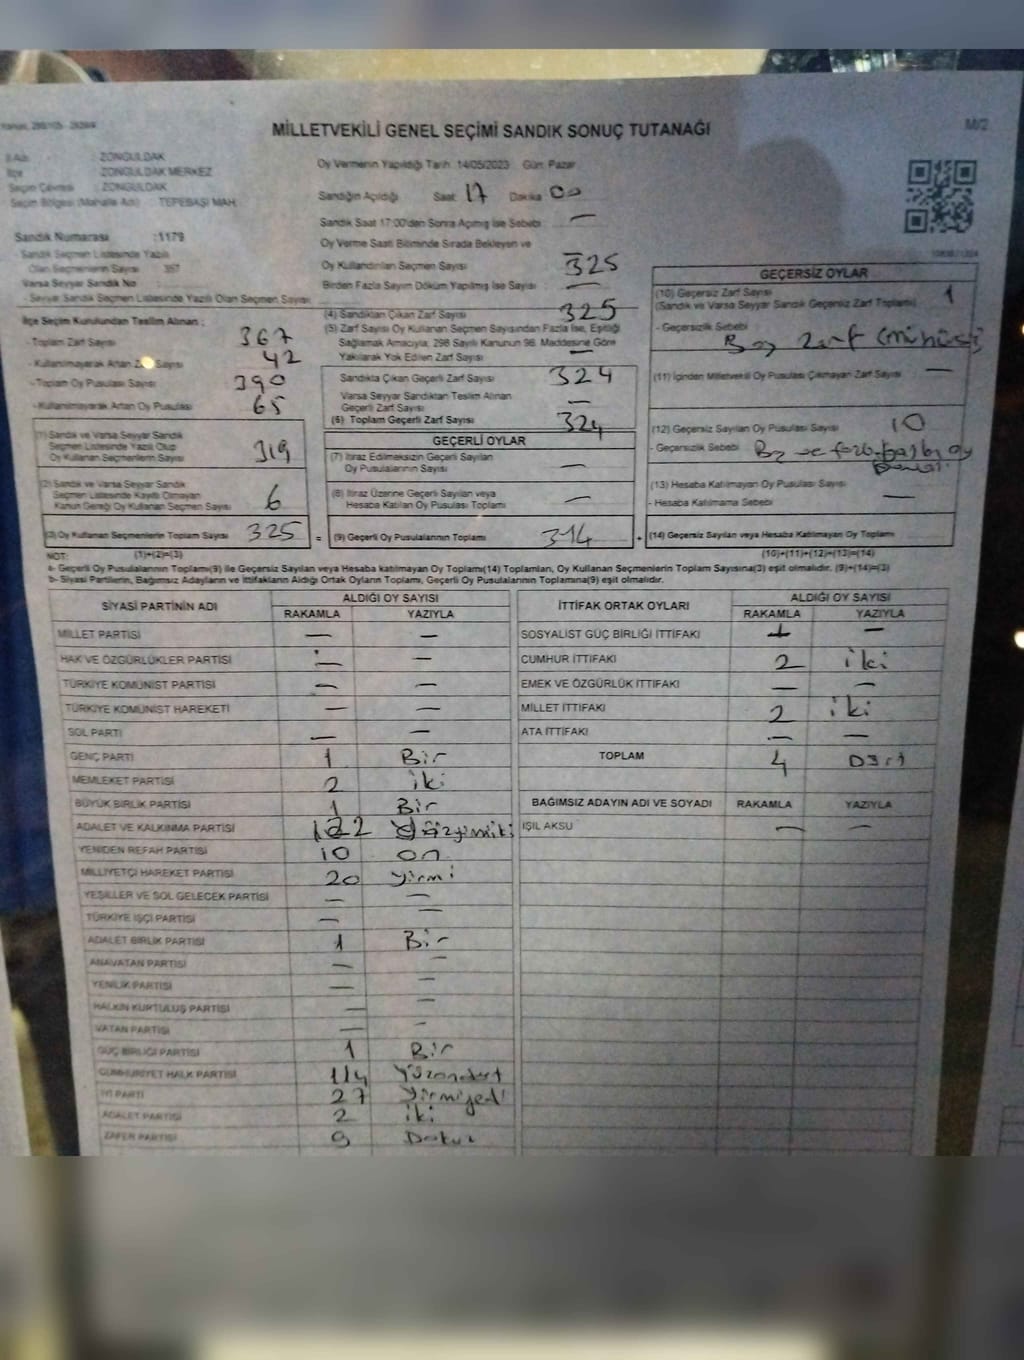 MİLLETVEKİLİ GENEL SEÇİMİ SANDIK SONUÇ TUTANAĞI
M/2
İl Adı : ZONGULDAK
İlçe : ZONGULDAK MERKEZ
Seçim Çevresi : ZONGULDAK
Seçim Bölgesi (Mahalle Adı) : TEPEBAŞI MAH.
Sandık Numarası : 1179
Sandık Seçmen Listesinde Yazılı
Olan Seçmenlerin Sayısı 357
Varsa Seyyar Sandık No
- Seyyar Sandık Seçmen Listesinde Yazılı Olan Seçmen Sayısı
Oy Vermenin Yapıldığı Tarih 14/05/2023 Gün: Pazar
Sandığın Açıldığı Saat 17 Dakika 00
Sandık Saat 17:00'den Sonra Açılmış İse Sebebi —
Oy Verme Saati Bitiminde Sırada Bekleyen ve —
Oy Kullandırılan Seçmen Sayısı 325
Birden Fazla Sayım Döküm Yapılmış İse Sayısı —
İlçe Seçim Kurulundan Teslim Alınan :
- Toplam Zarf Sayısı 367
- Kullanılmayarak Artan Zarf Sayısı 42
- Toplam Oy Pusulası Sayısı 390
- Kullanılmayarak Artan Oy Pusulası 65
(1) Sandık ve Varsa Seyyar Sandık
Seçmen Listesinde Yazılı Olup
Oy Kullanan Seçmenlerin Sayısı 319
(2) Sandık ve Varsa Seyyar Sandık
Seçmen Listesinde Kayıtlı Olmayan
Kanun Gereği Oy Kullanan Seçmen Sayısı 6
(3) Oy Kullanan Seçmenlerin Toplam Sayısı 325 =
(4) Sandıktan Çıkan Zarf Sayısı 325
(5) Zarf Sayısı Oy Kullanan Seçmen Sayısından Fazla İse, Eşitliği
Sağlamak Amacıyla, 298 Sayılı Kanunun 98. Maddesine Göre
Yakılarak Yok Edilen Zarf Sayısı —
Sandıkta Çıkan Geçerli Zarf Sayısı 324
Varsa Seyyar Sandıktan Teslim Alınan
Geçerli Zarf Sayısı —
(6) Toplam Geçerli Zarf Sayısı 324
GEÇERLİ OYLAR
(7) İtiraz Edilmeksizin Geçerli Sayılan
Oy Pusulalarının Sayısı —
(8) İtiraz Üzerine Geçerli Sayılan veya
Hesaba Katılan Oy Pusulası Toplamı —
(9) Geçerli Oy Pusulalarının Toplamı 314 +
GEÇERSİZ OYLAR
(10) Geçersiz Zarf Sayısı 1
(Sandık ve Varsa Seyyar Sandık Geçersiz Zarf Toplamı)
- Geçersizlik Sebebi
Boş zarf
(11) İçinden Milletvekili Oy Pusulası Çıkmayan Zarf Sayısı —
(12) Geçersiz Sayılan Oy Pusulası Sayısı 10
- Geçersizlik Sebebi
(13) Hesaba Katılmayan Oy Pusulası Sayısı
- Hesaba Katılmama Sebebi —
(14) Geçersiz Sayılan veya Hesaba Katılmayan Oy Toplamı
NOT: (1)+(2)=(3) (10)+(11)+(12)+(13)=(14)
a- Geçerli Oy Pusulalarının Toplamı(9) ile Geçersiz Sayılan veya Hesaba katılmayan Oy Toplamı(14) Toplamları, Oy Kullanan Seçmenlerin Toplam Sayısına(3) eşit olmalıdır. (9)+(14)=(3)
b- Siyasi Partilerin, Bağımsız Adayların ve İttifakların Aldığı Ortak Oyların Toplamı, Geçerli Oy Pusulalarının Toplamına(9) eşit olmalıdır.
SİYASİ PARTİNİN ADI ALDIĞI OY SAYISI
RAKAMLA YAZIYLA
MİLLET PARTİSİ — —
HAK VE ÖZGÜRLÜKLER PARTİSİ — —
TÜRKİYE KOMÜNİST PARTİSİ — —
TÜRKİYE KOMÜNİST HAREKETİ — —
SOL PARTİ — —
GENÇ PARTİ 1 Bir
MEMLEKET PARTİSİ 2 iki
BÜYÜK BİRLİK PARTİSİ 1 Bir
ADALET VE KALKINMA PARTİSİ 122
YENİDEN REFAH PARTİSİ 10 on
MİLLİYETÇİ HAREKET PARTİSİ 20 yirmi
YEŞİLLER VE SOL GELECEK PARTİSİ — —
TÜRKİYE İŞÇİ PARTİSİ — —
ADALET BİRLİK PARTİSİ 1 Bir
ANAVATAN PARTİSİ — —
YENİLİK PARTİSİ — —
HALKIN KURTULUŞ PARTİSİ — —
VATAN PARTİSİ — —
GÜÇ BİRLİĞİ PARTİSİ 1 Bir
CUMHURİYET HALK PARTİSİ 114 Yüzondört
İYİ PARTİ 27 yirmiyedi
ADALET PARTİSİ 2 iki
ZAFER PARTİSİ 9 Dokuz
İTTİFAK ORTAK OYLARI ALDIĞI OY SAYISI
RAKAMLA YAZIYLA
SOSYALİST GÜÇ BİRLİĞİ İTTİFAKI — —
CUMHUR İTTİFAKI 2 iki
EMEK VE ÖZGÜRLÜK İTTİFAKI — —
MİLLET İTTİFAKI 2 iki
ATA İTTİFAKI — —
TOPLAM 4 Dört
BAĞIMSIZ ADAYIN ADI VE SOYADI RAKAMLA YAZIYLA
IŞIL AKSU — —